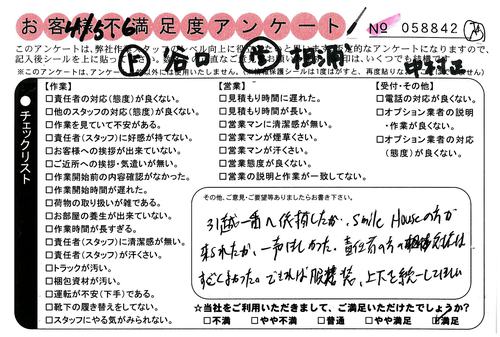 お客様不満足度アンケート
No 058842
このアンケートは、弊社作
記入後シールを上に貼って
※このアンケートは、
チェックリスト
【作業】
□責任者の対応(態度)が良くない。
□他のスタッフの対応(態度)が良くない。
□作業を見ていて不安がある。
□責任者(スタッフ)に好感が持てない。
□お客様への挨拶が出来ていない。
□ご近所への挨拶・気遣いが無い。
□作業開始前の内容確認がなかった。
□作業開始時間が遅れた。
□荷物の取り扱いが雑である。
□お部屋の養生が出来ていない。
□作業時間が長すぎる。
□責任者(スタッフ)に清潔感が無い。
□責任者(スタッフ)が汗くさい。
□トラックが汚い。
□梱包資材が汚い。
□運転が不安(下手)である。
□靴下の履き替えをしてない。
□スタッフにやる気がみられない。
【営業】
□見積もり時間に遅れた。
□見積もり時間が長い。
□営業マンに清潔感が無い。
□営業マンが煙草くさい。
□営業マンが汗くさい。
□営業態度が良くない。
□営業の説明と作業が一致してない。
【受付・その他】
□電話の対応が良くない。
□オプション業者の説明
・作業が良くない。
□オプション業者の対応
(態度)が良くない。
その他、ご意見・ご要望等ありましたらお書き下さい。
引越一番へ依頼したが、Smile Houseの方が
来られたが、一声ほしかった。責任者の方の
すごくよかった。できれば服装、上下を統一してほしい
☆当社をご利用いただきまして、ご満足いただけたでしょうか?
□不満 □やや不満 □普通 □やや満足 □満足